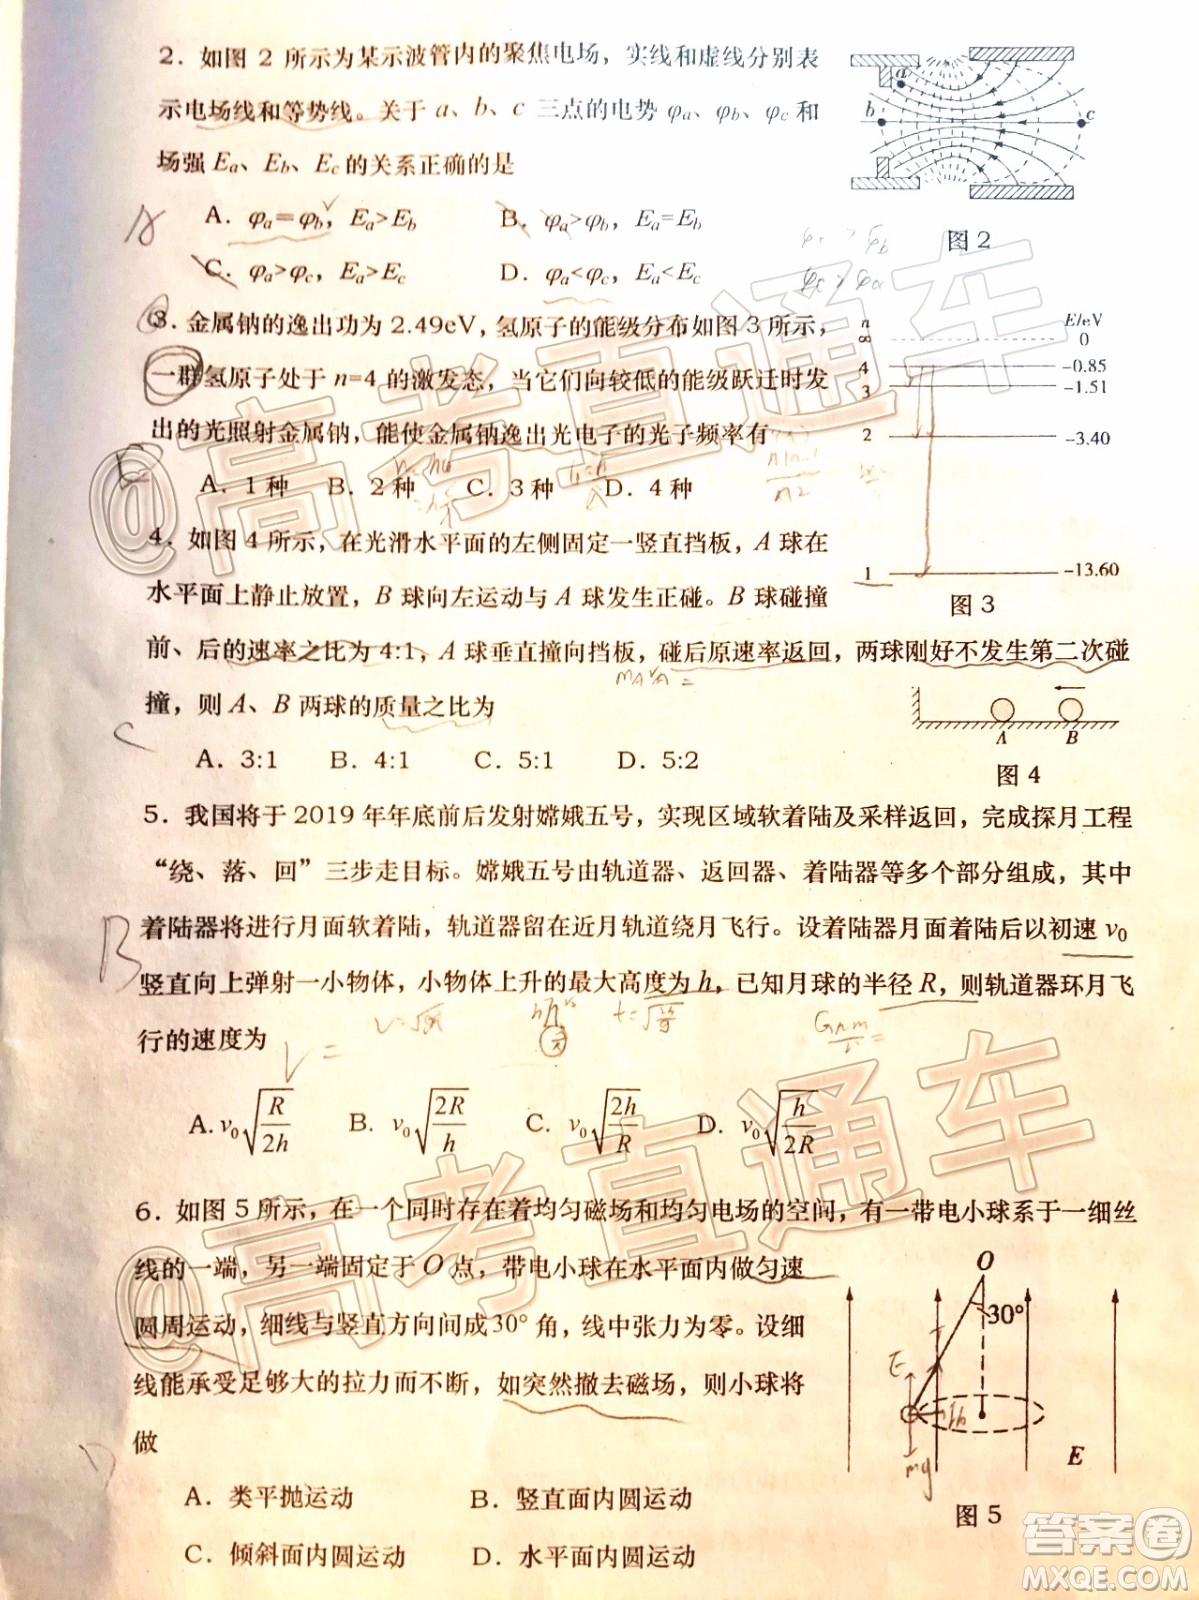 2．如图 2 所示为某示波管内的聚焦电场，实线和虚线分别表
示电场线和等势线。关于 a、b、c 三点的电势 φa、φb、φc 和
场强 Ea、Eb、Ec 的关系正确的是
A．φa＝φb，Ea>Eb
B．φa>φb，Ea=Eb
C．φa>φc，Ea>Ec
D．φa<φc，Ea<Ec
a
b
c
图 2
A
3．金属钠的逸出功为 2.49eV，氢原子的能级分布如图 3 所示，
一群氢原子处于 n=4 的激发态，当它们向较低的能级跃迁时发
出的光照射金属钠，能使金属钠逸出光电子的光子频率有
A．1 种 B．2 种 C．3 种 D．4 种
n E/eV
∞ 0
4 -0.85
3 -1.51
2 -3.40
1 -13.60
图 3
4．如图 4 所示，在光滑水平面的左侧固定一竖直挡板，A 球在
水平面上静止放置，B 球向左运动与 A 球发生正碰。B 球碰撞
前、后的速率之比为 4:1，A 球垂直撞向挡板，碰后原速率返回，两球刚好不发生第二次碰
撞，则 A、B 两球的质量之比为
A．3:1 B．4:1 C．5:1 D．5:2
C
A B
图 4
5．我国将于 2019 年年底前后发射嫦娥五号，实现区域软着陆及采样返回，完成探月工程
“绕、落、回”三步走目标。嫦娥五号由轨道器、返回器、着陆器等多个部分组成，其中
着陆器将进行月面软着陆，轨道器留在近月轨道绕月飞行。设着陆器月面着陆后以初速 v0
竖直向上弹射一小物体，小物体上升的最大高度为 h，已知月球的半径 R，则轨道器环月飞
行的速度为
B
A. v0√(R/2h) B. v0√(2R/h) C. v0√(2h/R) D. v0√(h/2R)
6．如图 5 所示，在一个同时存在着均匀磁场和均匀电场的空间，有一带电小球系于一细丝
线的一端，另一端固定于 O 点，带电小球在水平面内做匀速
圆周运动，细线与竖直方向间成30° 角，线中张力为零。设细
线能承受足够大的拉力而不断，如突然撤去磁场，则小球将
做
A．类平抛运动 B．竖直面内圆运动
C．倾斜面内圆运动 D．水平面内圆运动
D
O
30°
E
mg
图 5
@高考直通车
@高考直通车
答案圈
MXQE.COM